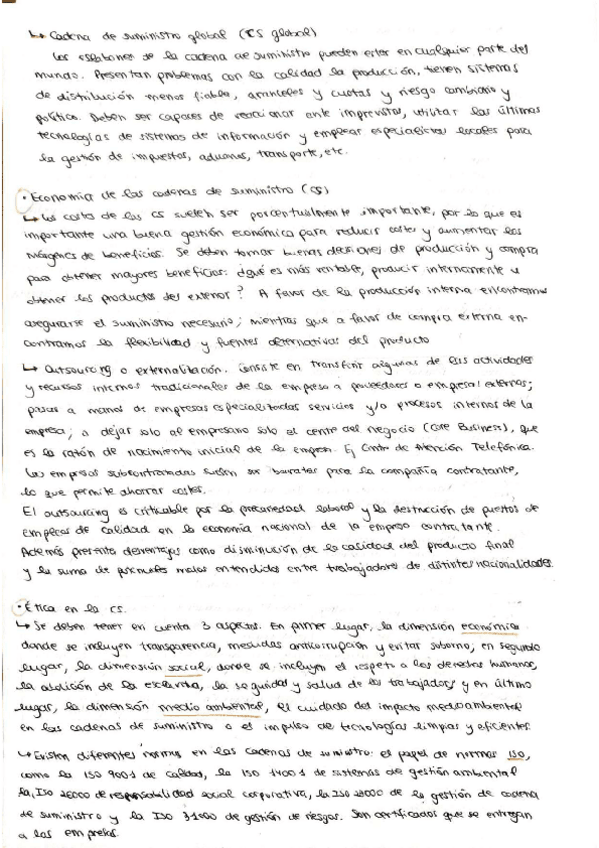 ↳ Cadena de suministro global (CS global)
Los eslabones de la cadena de suministro pueden estar en cualquier parte del
mundo. Presentan problemas con la calidad la producción, tienen sistemas
de distribución menos fiable, aranceles y cuotas y riesgo cambiario y
político. Deben ser capaces de reaccionar ante imprevistos, utilizar las últimas
tecnologías de sistemas de información y emplear especialistas locales para
la gestión de impuestos, aduanas, transporte, etc.
• Economía de las cadenas de suministro (CS)
↳ Los costos de las CS suelen ser porcentualmente importante, por lo que es
importante una buena gestión económica para reducir costes y aumentar los
márgenes de beneficios. Se deben tomar buenas decisiones de producción y compra
para obtener mayores beneficios: ¿qué es más rentable, producir internamente u
obtener los productos del exterior? A favor de la producción interna encontramos
asegurarse el suministro necesario; mientras que a favor de compra externa en-
contramos la flexibilidad y fuentes alternativas del producto
↳ Outsourcing o externalización. Consiste en transferir algunas de las actividades
y recursos internos tradicionales de la empresa a proveedores o empresas externas;
pasar a manos de empresas especializadas servicios y/o procesos internos de la
empresa; a dejar solo al empresario solo el centro del negocio (Core Business), que
es la razón de nacimiento inicial de la empresa. Ej Centro de Atención Telefónica.
Las empresas subcontratadas suelen ser baratas para la compañía contratante,
lo que permite ahorrar costes.
El outsourcing es criticable por la precariedad laboral y la destrucción de puestos de
empleos de calidad en la economía nacional de la empresa contratante.
Además presenta desventajas como disminución de la calidad del producto final
y la suma de posibles malos entendidos entre trabajadores de distintas nacionalidades.
• Ética en la cs.
↳ Se deben tener en cuenta 3 aspectos. En primer lugar, la dimensión económica
donde se incluyen transparencia, medidas anticorrupción y evitar soborno, en segundo
lugar, la dimensión social, donde se incluyen el respeto a los derechos humanos,
la abolición de la esclavitud, la seguridad y salud de los trabajadores y en último
lugar, la dimensión medio ambiental, el cuidado del impacto medioambiental
en las cadenas de suministro o el impulso de tecnologías limpias y eficientes.
↳ Existen diferentes normas en las cadenas de suministro: el papel de normas ISO,
como la ISO 9001 de calidad, la ISO 14001 de sistemas de gestión ambiental
la, ISO 26000 de responsabilidad social corporativa, la ISO 28000 de la gestión de cadena
de suministro y la ISO 31000 de gestión de riesgos. Son certificados que se entregan
a las empresas.